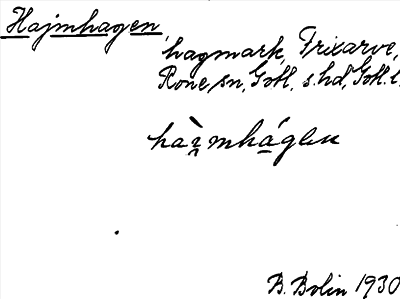 Hajmhagen,
hagmark, Frixarve,
Rone sn, Gotl. s. hd, Gotl. l.
hàımhá̱gen
B. Bolin 1930